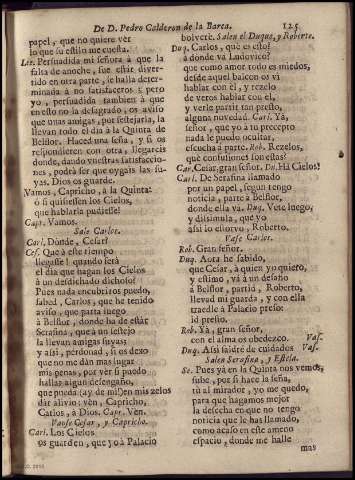 De D. Pedro Calderon de la Barca. 125
papel, que no quiere ver
lo que su estilo me cuesta.
Lee. Persuadida mi señora à que la
falta de anoche, fue estàr diver-
tido en otra parte, se halla deter-
minada à no satisfaceros; pero
yo, persuadida tambien à que
en esto no la desagrado, os aviso
que unas amigas, por festejarla, la
llevan todo el dia à la Quinta de
Belflor. Haced una seña, y si os
respondieren con otra, llegareis
donde, dando vuestras satisfaccio-
nes, podrà ser que oygais las su-
yas. Dios os guarde.
Vamos, Capricho, à la Quinta:
ò si quisiessen los Cielos,
que hablarla pudiesse!
Capr. Vamos.
Sale Carlos.
Carl. Dònde, Cesar?
Ces. Què à este tiempo
llegasse! quando serà
el dia que hagan los Cielos
à un desdichado dichoso!
Pues nada encubriros puedo,
sabed, Carlos, que he tenido
aviso, que parta luego
à Belflor, donde ha de estàr
Serafina, que à un festejo
la llevan amigas suyas;
y assi, perdonad, si os dexo
que no me dàn mas lugar
mis penas, por vèr si puedo
hallar algun desengaño,
que pueda (ay de mi!) en mis zelos
dàr alivio: vèn, Capricho,
Carlos, à Dios. Capr. Vèn.
Vanse Cesar, y Capricho.
Carl. Los Cielos
os guarden, que yo à Palacio
bolverè. Salen el Duque, y Roberto.
Duq. Carlos, què es esto?
à dònde va Ludovico?
que como amor todo es miedos,
desde aquel balcon os vì
hablar con èl, y rezelo
de veros hablar con èl,
y verle partir tan presto,
alguna novedad. Carl. Yà,
señor, que yo à tu precepto
nada le puedo ocultar,
escucha à parte. Rob. Rezelos,
què confusiones son estas?
Car. Cesar, gran señor. Du. Ha Cielos!
Carl. De Serafina llamado
por un papel, segun tengo
noticia, parte à Belflor,
donde ella và. Duq. Vete luego,
y dissimula, que yo
assi lo estorvo, Roberto.
Vase Carlos.
Rob. Gran señor.
Duq. Aora he sabido,
que Cesar, à quien yo quiero,
y estimo, và à un desafio
à Belflor, partid, Roberto,
llevad mi guarda, y con ella
traedle à Palacio preso:
id presto.
Rob. Yà, gran señor,
con el alma os obedezco. Vas.
Duq. Assi saldrè de cuidados Vas.
Salen Serafina, y Estela.
Se. Pues yà en la Quinta nos vemos,
sube, por si hace la seña,
tù al mirador, yo me quedo,
para que hagamos mejor
la desecha en que no tengo
noticia que le has llamado,
como acaso en este ameno
espacio, donde me halle
mas